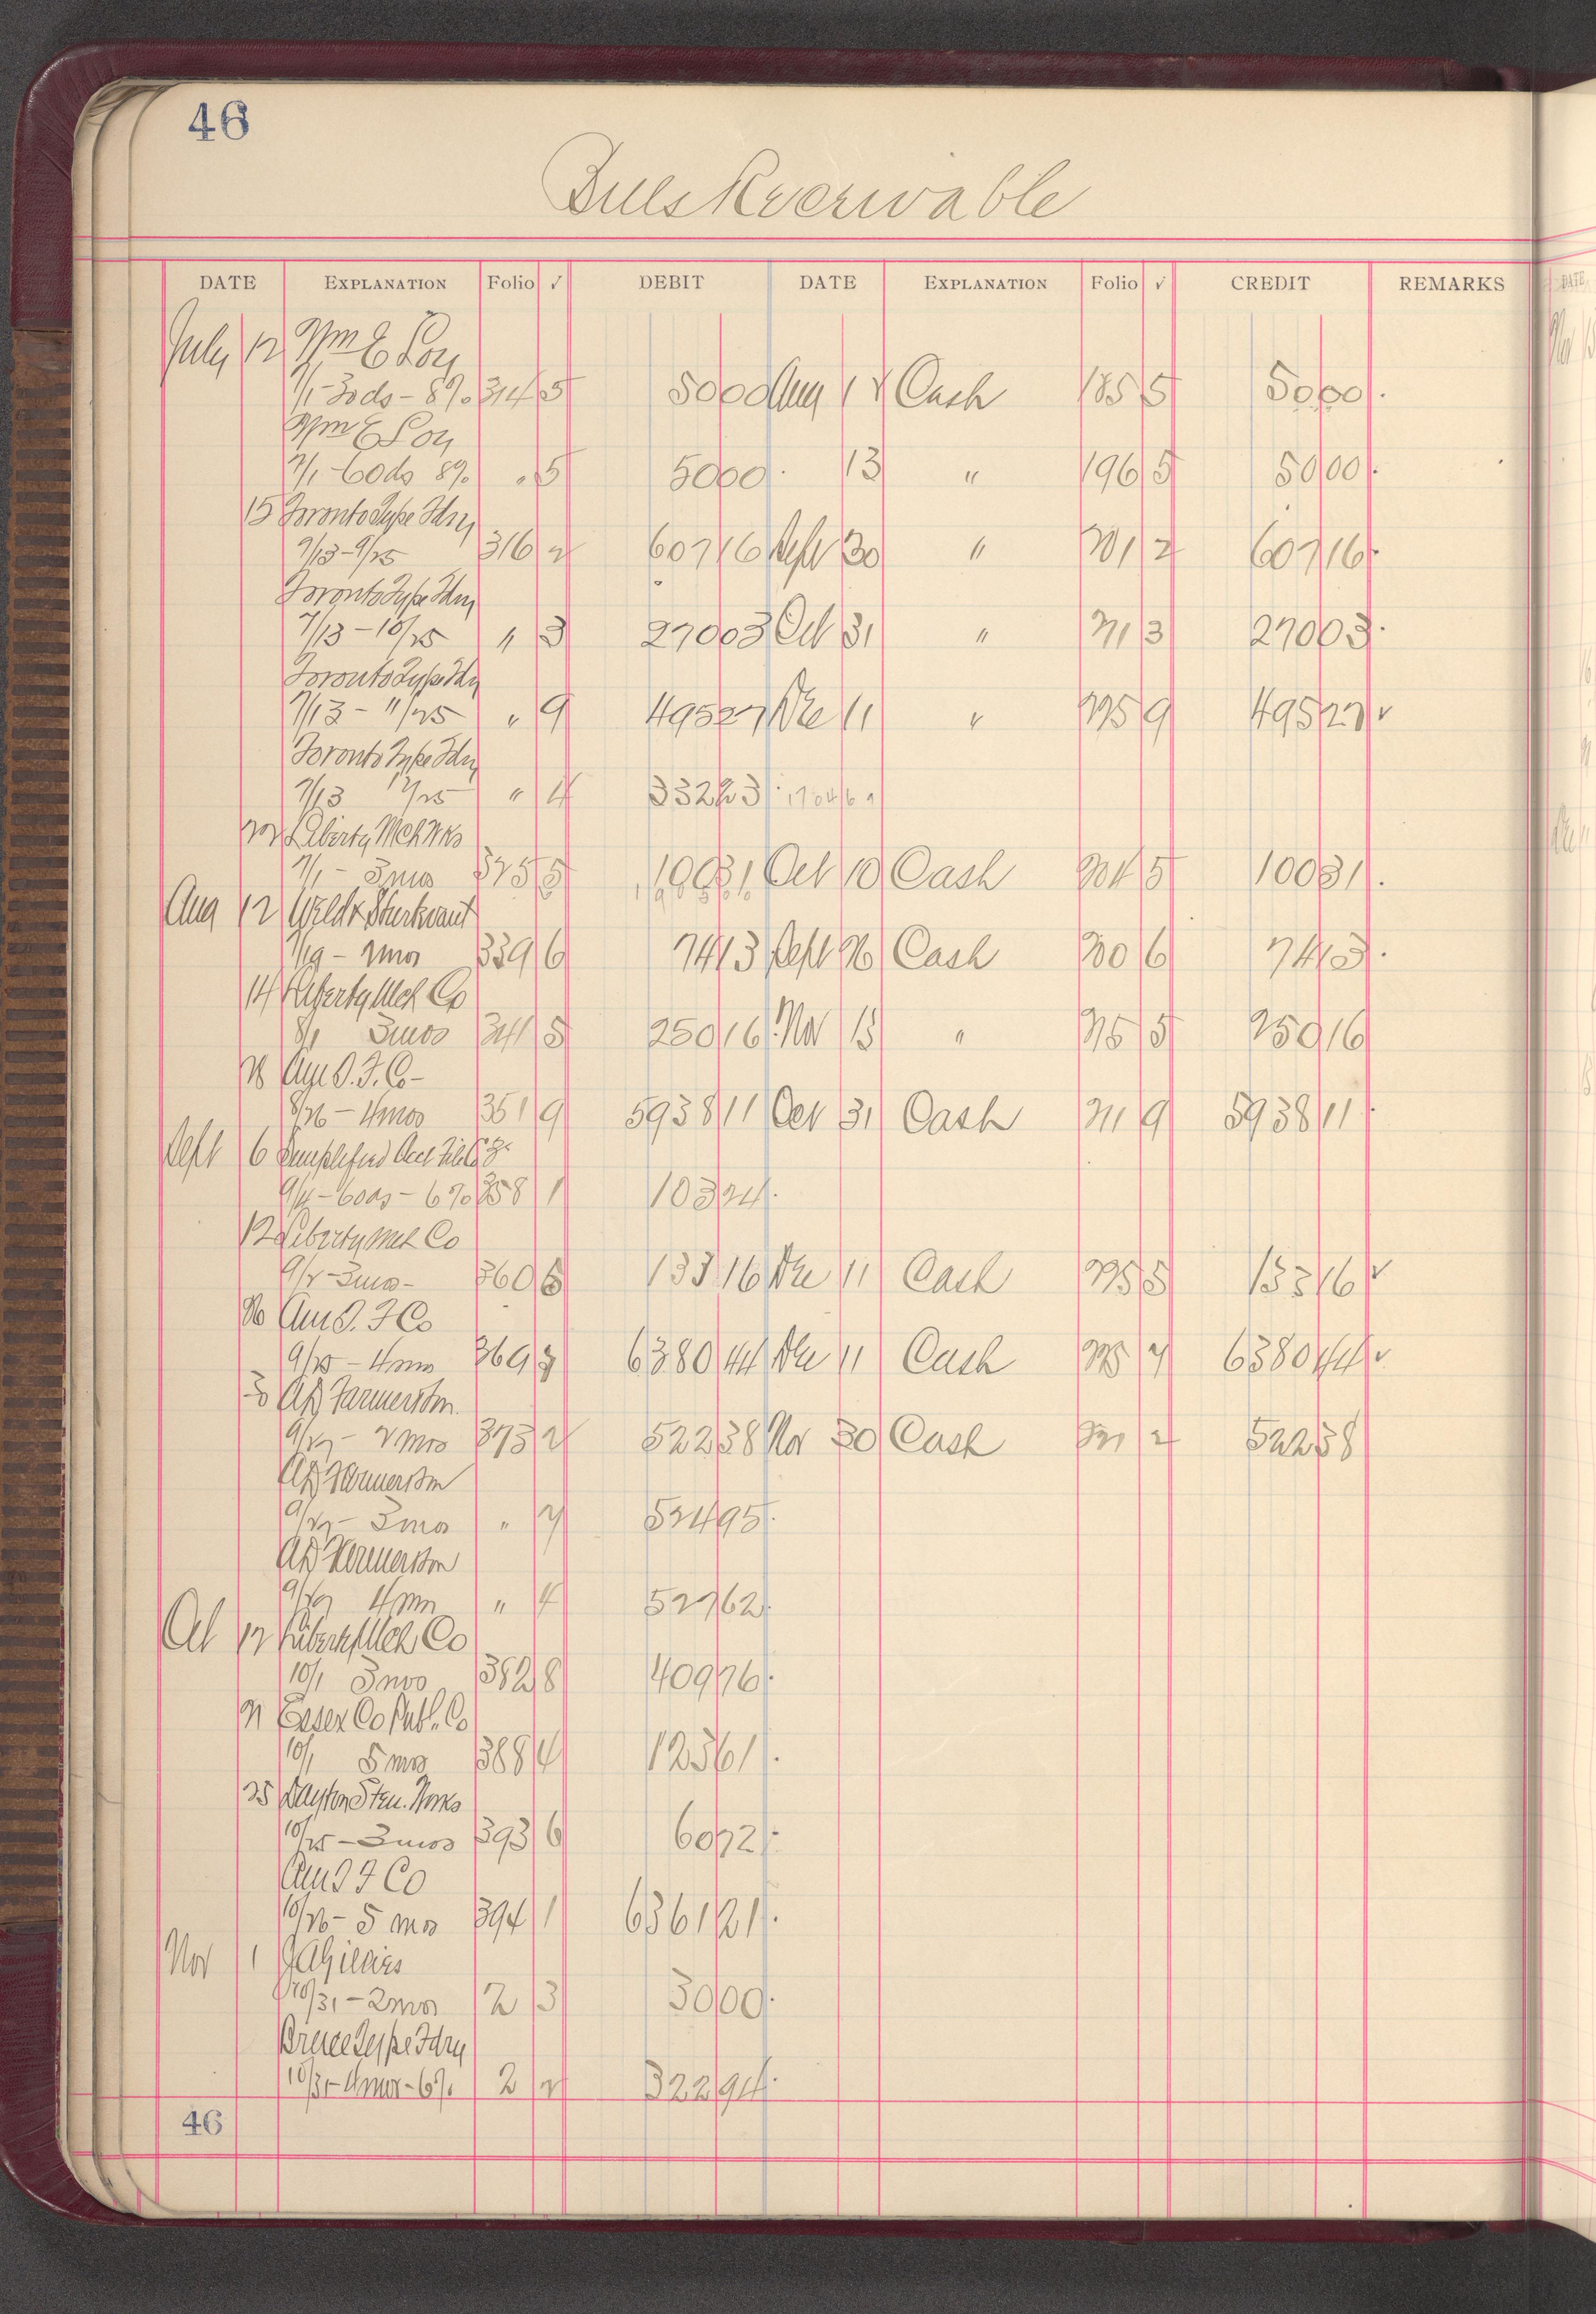 46
Bills Receivable
DATE EXPLANATION Folio √ DEBIT DATE EXPLANATION Folio √ CREDIT REMARKS
July 12 Wm E Loy
7/1-30ds-8% 314 5 50 00 Aug 12 Cash 185 5 50 00
Wm E Loy
7/1-60ds 8% " 5 50 00 13 " 196 5 50 00
15 Toronto Type Fdry
7/13-9/25 316 2 607 16 Sept 30 " 201 2 607 16
Toronto Type Fdry
7/13-10/25 " 3 270 03 Oct 31 " 211 3 270 03
Toronto Type Fdry
7/13-11/25 " 9 495 27 Dec 11 " 225 9 495 27 √
Toronto Type Fdry
7/13 12/25 " 4 332 23
22 Liberty Mch Wks
7/1-3mos 325 5 100 31 Oct 10 Cash 204 5 100 31
Aug 12 Wild & Sturtevant
7/19-2mos 339 6 74 13 Sept 26 Cash 200 6 74 13
14 Liberty Mch Co
8/1 3mos 341 5 250 16 Nov 13 " 215 5 250 16
26 Am T. F. Co-
8/26-4mos 351 9 5938 11 Oct 31 Cash 211 9 5938 11
Sept 6
9/4-60ds-6% 358 1 103 24
12 Liberty Mch Co
9/2-3mos- 360 5 133 16 Dec 11 Cash 225 5 133 16 √
26 Am T. F Co
9/25-4mos 369 7 6380 44 Dec 11 Cash 225 7 6380 44 √
30
9/27-2mos 373 2 522 38 Nov 30 Cash 221 2 522 38
9/27-3mos " 7 524 95
9/27 4mos " 4 527 62
Oct 12 Liberty Mch Co
10/1 3mos 382 8 409 76
21 Essex Co Publ. Co
10/1 5mos 388 4 125 61
25 Dayton Sten. Works
10/25-3mos 393 6 60 72
Am T F Co
10/26-5 mos 394 1 6361 21
Nov 1
10/31-2mos 2 3 30 00
Bruce Type Fdry
10/31-4mos-6% 2 2 322 94
46